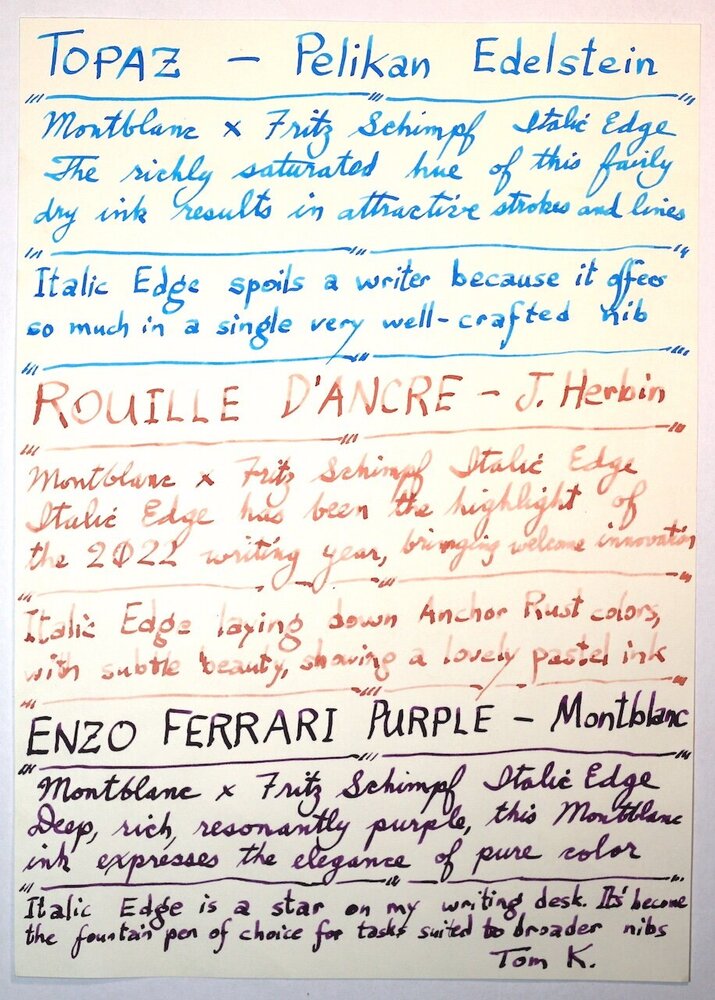 TOPAZ — Pelikan Edelstein
Montblanc x Fritz Schimpf Italic Edge
The richly saturated hue of this fairly
dry ink results in attractive strokes and lines
Italic Edge spoils a writer because it offers
so much in a single very well-crafted nib
ROUILLE D'ANCRE – J. Herbin
Montblanc x Fritz Schimpf Italic Edge
Italic Edge has been the highlight of
the 2022 writing year, bringing welcome innovation
Italic Edge laying down Anchor Rust colors,
with subtle beauty, showing a lovely pastel ink
ENZO FERRARI PURPLE – Montblanc
Montblanc x Fritz Schimpf Italic Edge
Deep, rich, resonantly purple, this Montblanc
ink expresses the elegance of pure color
Italic Edge is a star on my writing desk. It's become
the fountain pen of choice for tasks suited to broader nibs
Tom K.